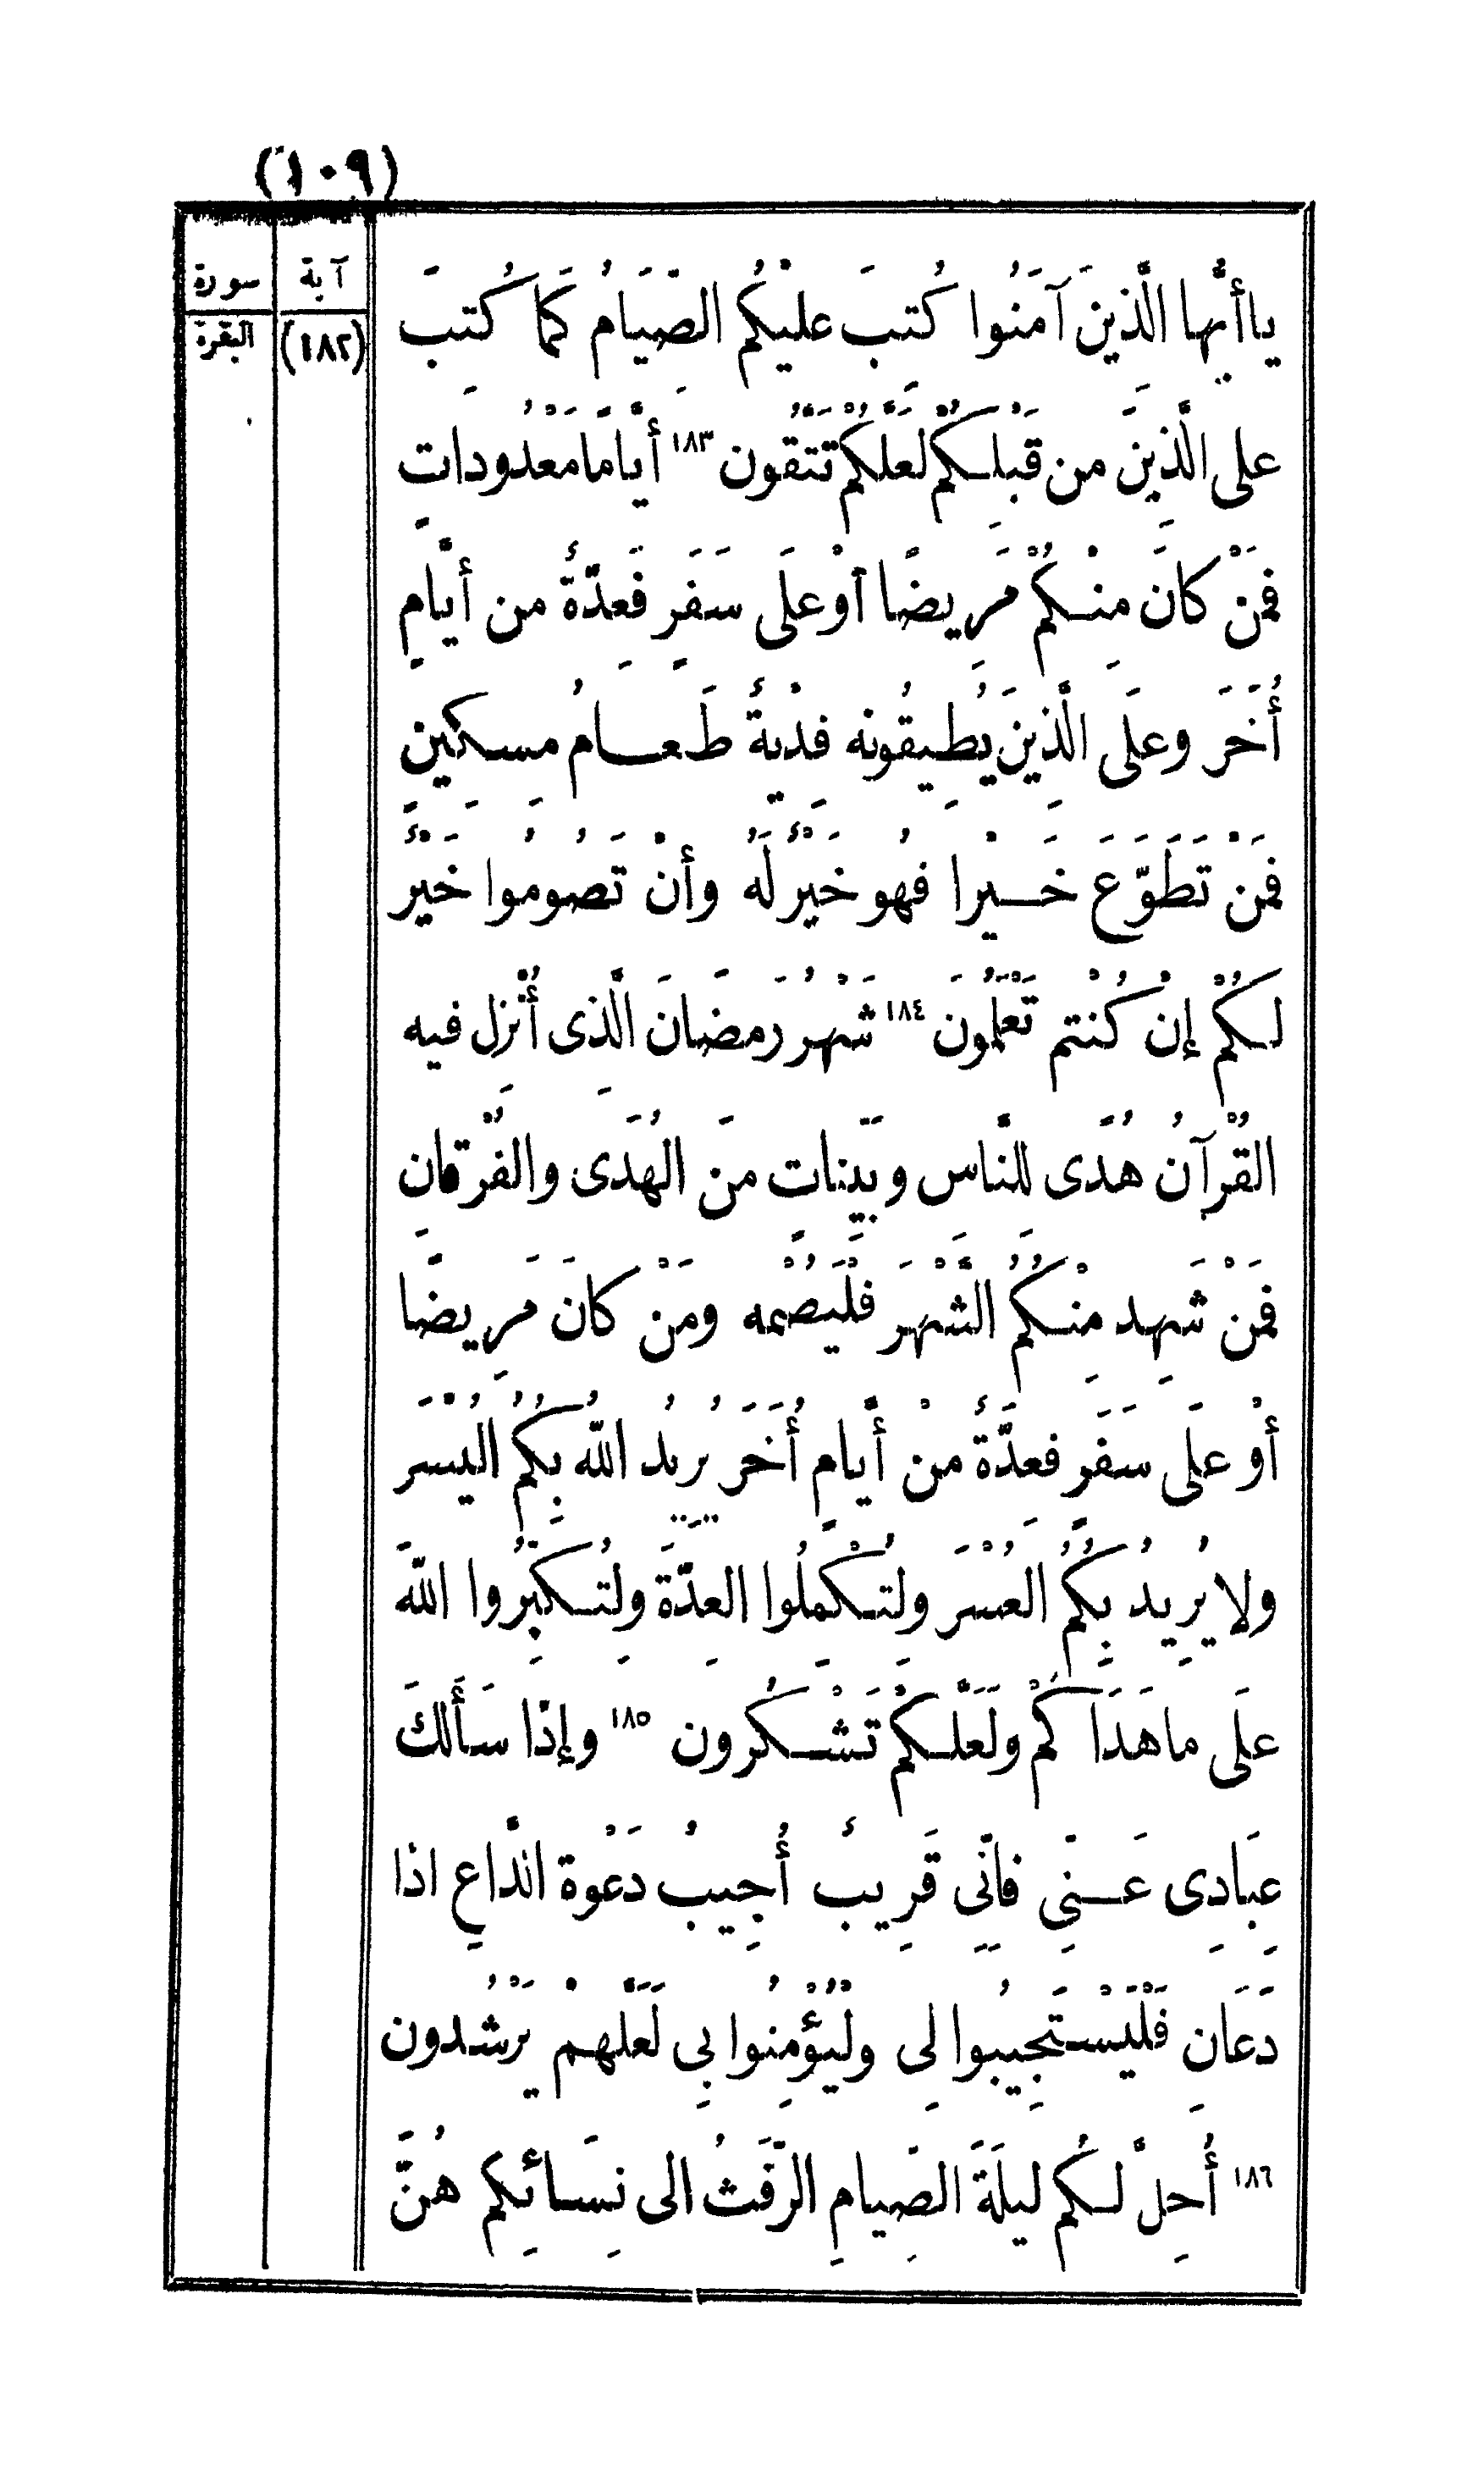 (١٠٩)
آية سورة
(١٨٢) البقرة
ياأيُّها الَّذِينَ آمَنُوا كُتِبَ عليْكُم الصِّيَامُ كَمَا كُتِبَ
على الَّذِينَ من قَبْلِكُمْ لَعَلَّكُمْ تَتَّقُون ١٨٣ أيَّامًا مَعْدُوداتٍ
فَمَنْ كانَ مِنْكُمْ مَرِيضًا أوْ علَى سَفَرٍ فَعِدَّةٌ من أيَّامٍ
أُخَرَ وعلَى الَّذِينَ يُطِيقُونه فِدْيةٌ طَعامُ مِسكِينٍ
فَمَنْ تَطَوَّعَ خَيْرا فهُو خَيْرٌ لَهُ وأنْ تَصُومُوا خَيْرٌ
لكُمْ إنْ كُنْتم تَعْلَمُونَ ١٨٤ شَهْرُ رَمضَانَ الَّذِى أُنْزِل فيه
القُرْآنُ هُدًى للنَّاسِ وبَيّناتٍ مِنَ الهُدَى والفُرْقانِ
فَمَنْ شَهِد مِنْكُمُ الشَّهْرَ فَلْيَصُمْه ومَنْ كانَ مَرِيضًا
أوْ علَى سَفَرٍ فعِدَّةٌ منْ أيَّامٍ أُخَرَ يُرِيدُ اللهُ بِكُمُ اليُسْرَ
ولا يُرِيدُ بِكُمُ العُسْرَ ولِتُكْمِلُوا العِدَّةَ ولِتُكَبِّرُوا اللهَ
علَى ما هَدَاكُمْ ولَعَلَّكُمْ تَشْكُرون ١٨٥ وإذَا سَأَلكَ
عِبَادِى عَنِّى فانِّى قَرِيبٌ أُجِيبُ دَعْوة الدَّاعِ اذا
دَعَانِ فَلْيَسْتَجِيبُوا لِى ولْيُؤْمِنُوا بِى لَعَلَّهمْ يَرْشُدون
١٨٦ أُحِلَّ لكُم ليلَةَ الصِّيامِ الرَّفَثُ الى نِسَائِكم هُنَّ